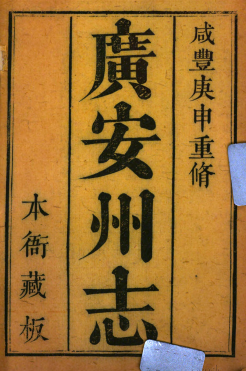 咸豐庚申重脩
廣安州志
本衙藏板